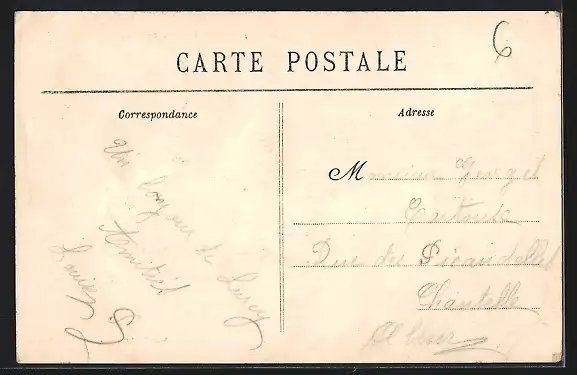 6
CARTE POSTALE
Correspondance
Adresse
Un bonjour de Lurcy
Amitiés
Louise
Monsieur Georget
Rue des
Chantelle
Allier